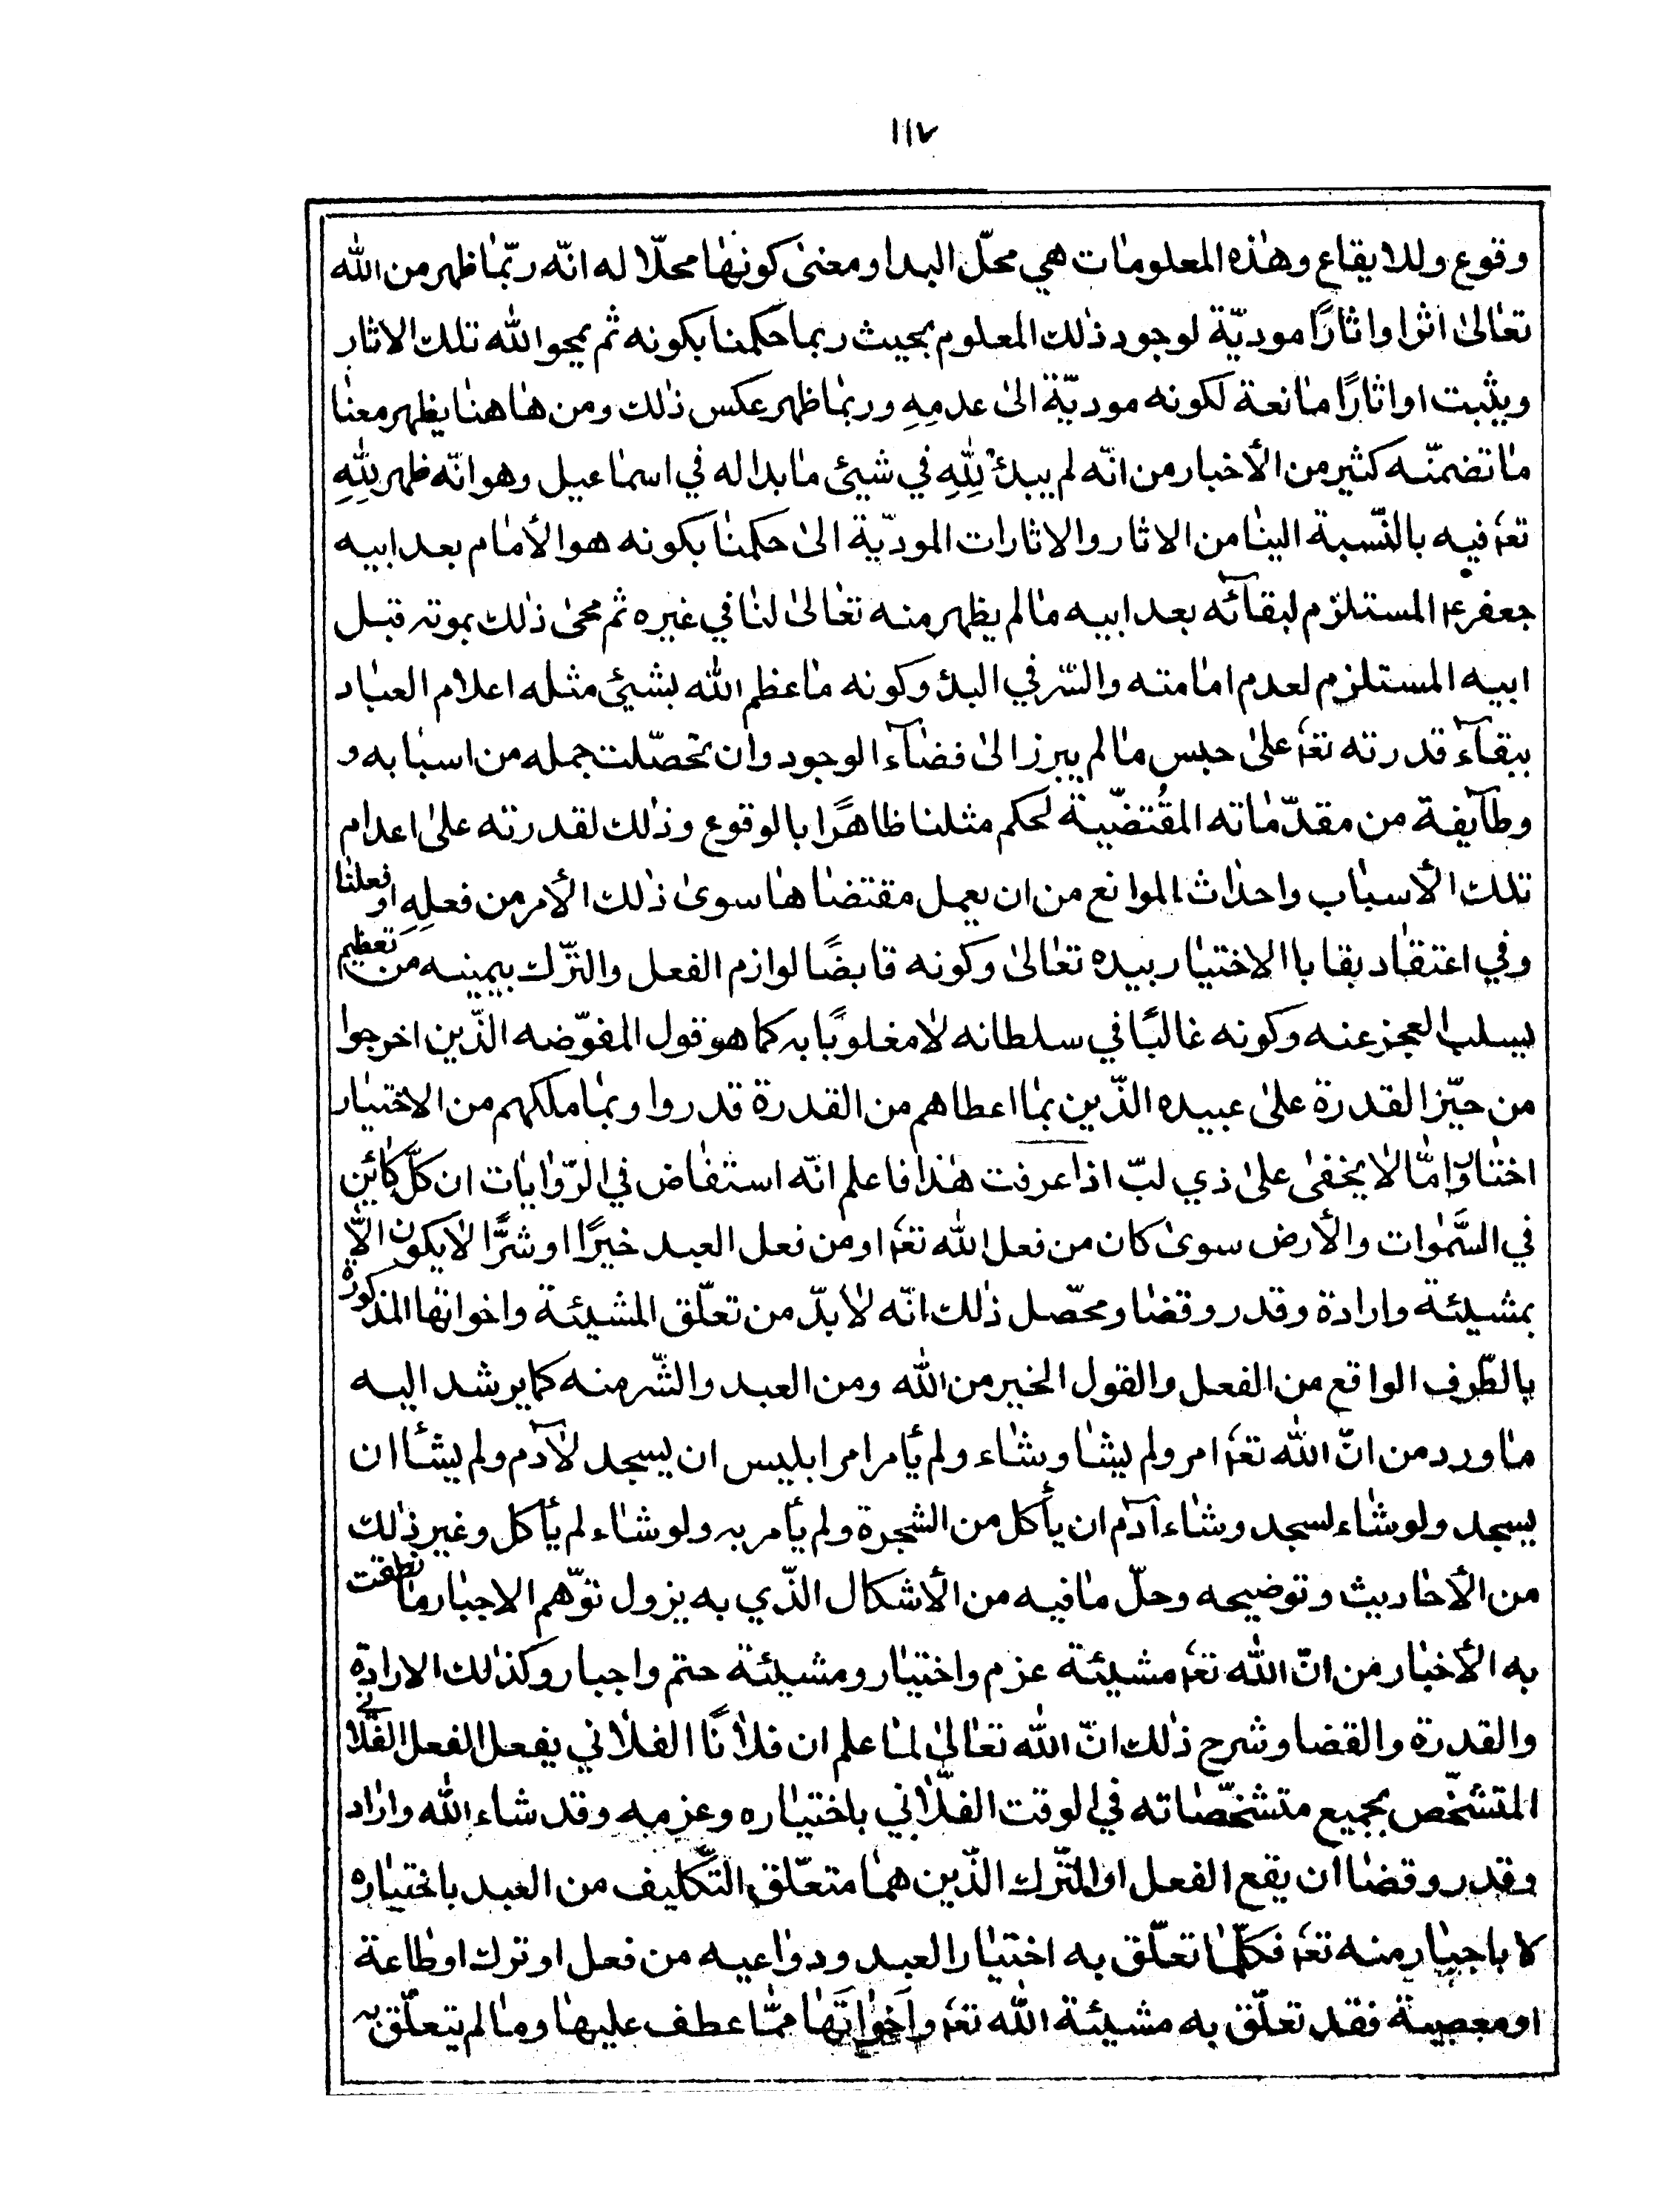 ١١٧
وقوع وللايقاع وهذه المعلومات هي محلّ البدا ومعنى كونها محلّا له انّه ربّما ظهر من الله
تعالى اثرا واثارًا موديّة لوجود ذلك المعلوم بحيث ربما حكمنا بكونه ثم يمحو الله تلك الاثار
ويثبت او اثارًا مانعة لكونه موديّة الى عدمِهِ وربما ظهر عكس ذلك ومن هاهنا يظهر معنا
ما تضمنّه كثير من الأخبار من انّه لم يبدُ للهِ في شيئ ما بدا له في اسماعيل وهو انّه ظهر للهِ
تعٰ فيه بالنّسبة الينا من الاثار والاثارات الموديّة الى حكمنا بكونه هو الأمام بعد ابيه
جعفرع المستلزم لبقائه بعد ابيه ما لم يظهر منه تعالى لنا في غيره ثم محى ذلك بموته قبل
ابيه المستلزم لعدم امامته والسّر في البدؤ وكونه ما عظم الله بشيئ مثله اعلام العباد
ببقآء قدرته تعٰ على حبس ما لم يبرز الى فضآء الوجود وان تحصّلت جمله من اسبابه و
وطآيفة من مقدّماته المقُتضّية لحكم مثلنا ظاهرًا بالوقوع وذلك لقدرته على اعدام
تلك الأسباب واحداث الموانع من ان يعمل مقتضاها سوى ذلك الأمر من فعلِهِ او فعلنا
وفي اعتقاد بقا باالاختيار بيده تعالى وكونه قابضًا لوازم الفعل والترّك بيمينه من تعظيم
بسلب العجز عنه وكونه غالبًا في سلطانه لا مغلوبًا به كما هو قول المفوّضه الذّين اخرجوا
من حيّز القدرة على عبيده الذّين بما اعطاهم من القدرة قدروا وبما ملكهم من الاختيار
اختاروا مّما لا يخفى على ذي لبّ اذا عرفت هذا فاعلم انّه استفاض في الرّوايات ان كلّ كائن
في السَّموات والأرض سوى كان من فعل الله تعٰ او من فعل العبد خيرًا او شرًّا لا يكون الّا
بمشيئة وارادة وقدر وقضا ومحصّل ذلك انّه لا بدّ من تعلّق المشيئة واخواتها المذكورة
بالطّرف الواقع من الفعل والقول الخير من الله ومن العبد والشّر منه كما يرشد اليه
ما ورد من انّ الله تعٰ امر ولم يشا وشاء ولم يأمر امر ابليس ان يسجد لآدم ولم يشأ ان
يسجد ولو شاء لسجد وشاء آدم ان يأكل من الشجرة ولم يأمر به ولو شاء لم يأكل وغير ذلك
من الأحاديث وتوضيحه وحلّ ما فيه من الأشكال الذّي به يزول توّهم الاجبار ما نطقت
به الأخبار من انّ الله تعٰ مشيئة عزم واختيار ومشيئة حتم واجبار وكذلك الارادة
والقدرة والقضا وشرح ذلك انّ الله تعالى لما علم ان فلانًا الفلاني يفعل الفعل الفلاني
المتشخّص بجميع متشخّصاته في الوقت الفلّاني باختياره وعزمه وقد شاء الله واراد
وقدر وقضا ان يقع الفعل او الترّك الذّين هما متعلّق التّكليف من العبد باختياره
لا باجبار منه تعٰ فكلّما تعلّق به اختيار العبد ودواعيه من فعل او ترك او طاعة
او معصية فقد تعلّق به مشيئة الله تعٰ واَخواتَها ممّا عطف عليها وما لم يتعلّق به